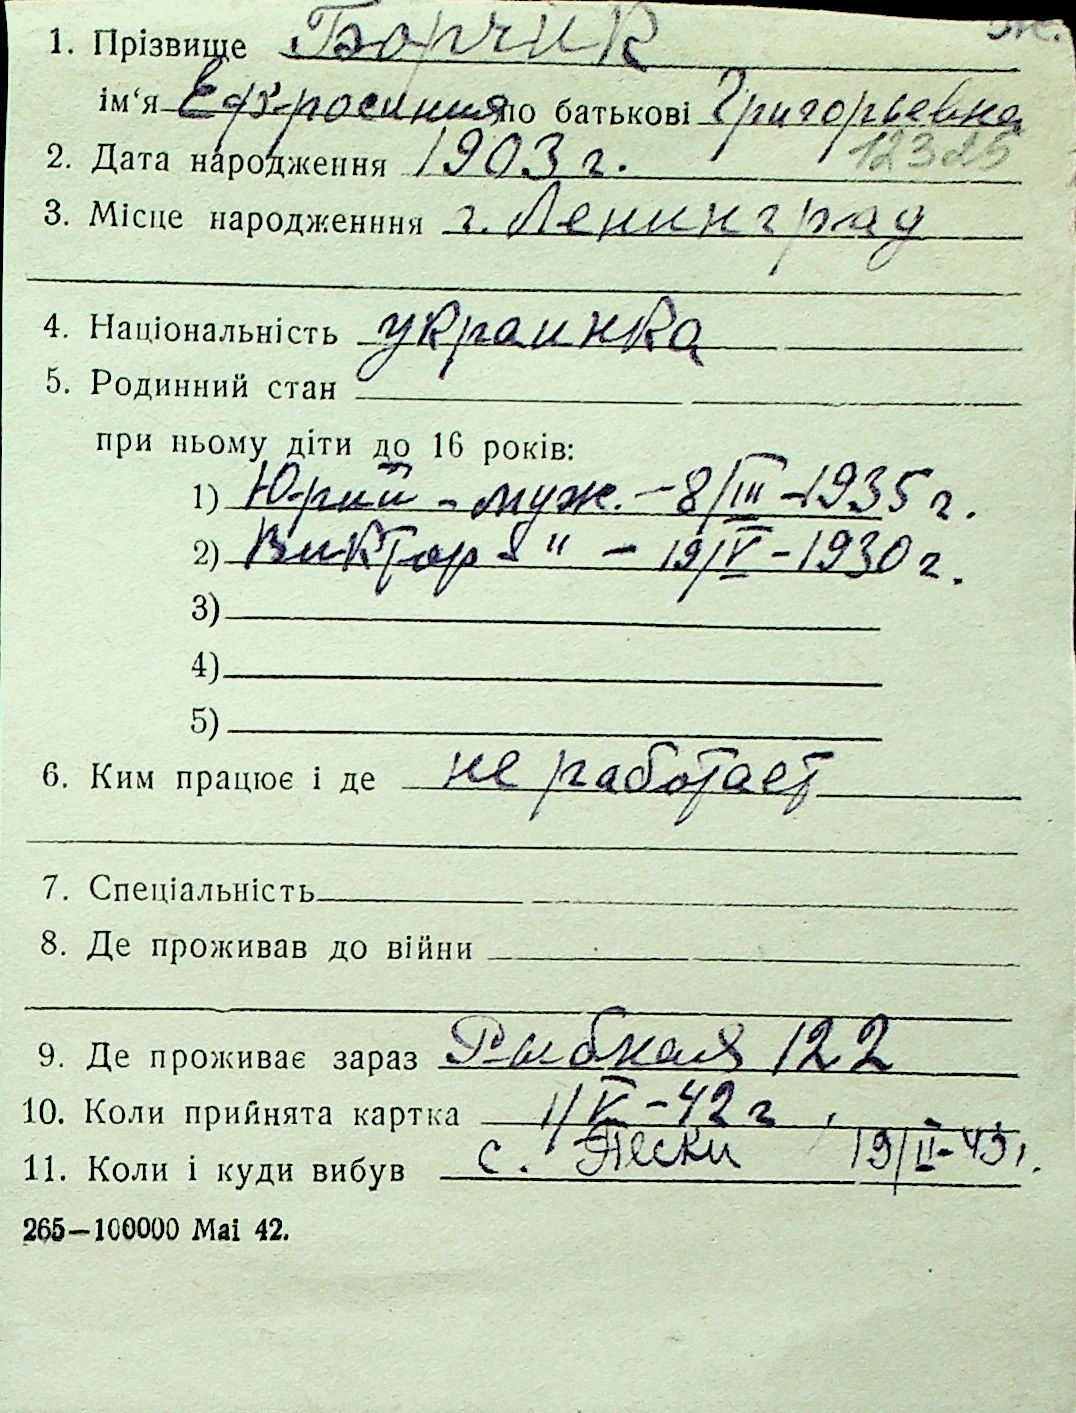 1. Прізвище Борчик ж.
ім‘я Ефросиния по батькові Григорьевна
2. Дата народження 1903 г. 12325
3. Місце народженння г. Ленинград
4. Національність украинка
5. Родинний стан
при ньому діти до 16 років:
1) Юрий - муж. - 8/III - 1935 г.
2) Виктор - " - 19/V - 1930 г.
3)
4)
5)
6. Ким працює і де не работает
7. Спеціальність
8. Де проживав до війни
9. Де проживає зараз Рыбная 122
10. Коли прийнята картка 1/V - 42 г
11. Коли і куди вибув с. Пески 19/II - 43 г.
265—100000 Маі 42.